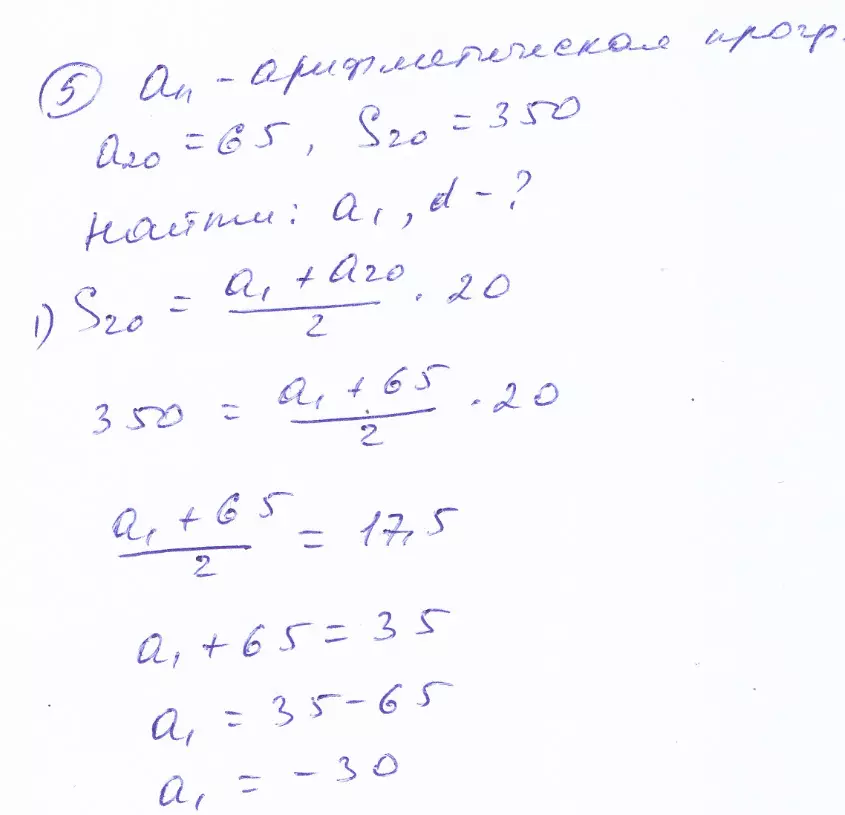 5 aₙ - арифметическая прогр.
a₂₀ = 65, S₂₀ = 350
Найти: a₁, d - ?
1) S₂₀ = (a₁ + a₂₀)/2 · 20
350 = (a₁ + 65)/2 · 20
(a₁ + 65)/2 = 17,5
a₁ + 65 = 35
a₁ = 35 - 65
a₁ = -30